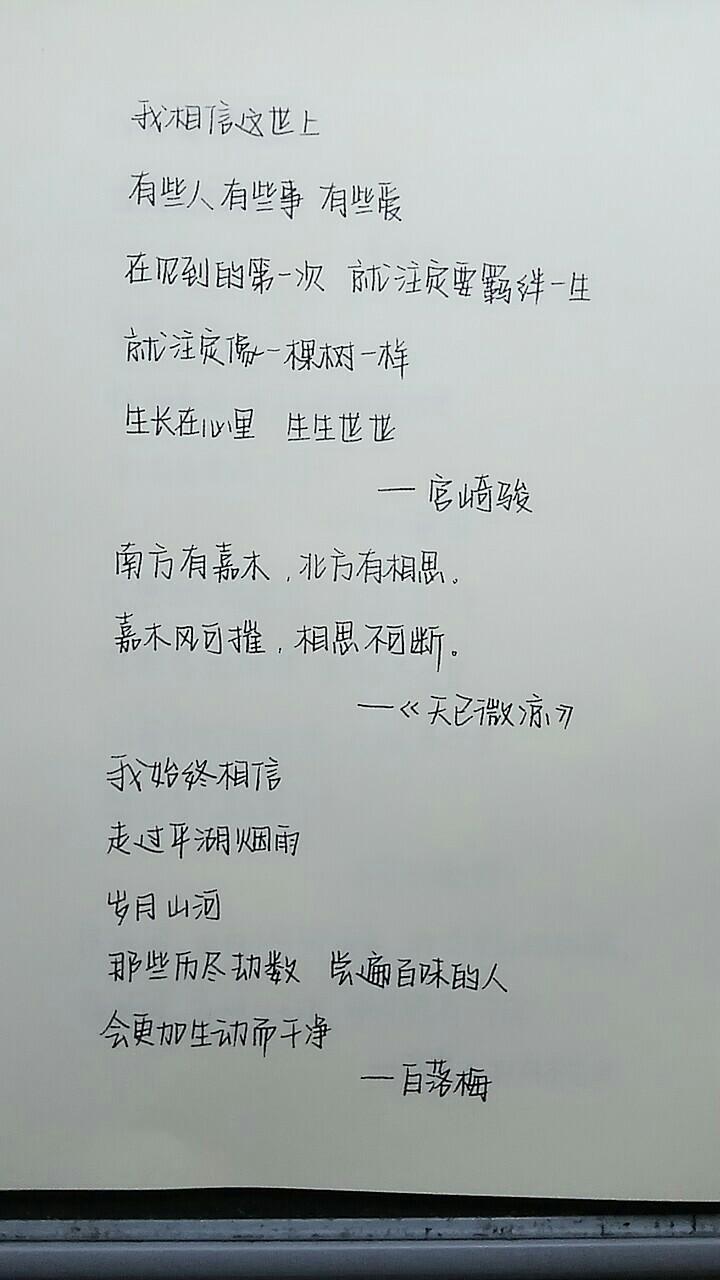 我相信这世上
有些人有些事 有些爱
在见到的第一次 就注定要羁绊一生
就注定像一棵树一样
生长在心里 生生世世
— 宫崎骏
南方有嘉木，北方有相思。
嘉木风可摧，相思不可断。
—《天已微凉》
我始终相信
走过平湖烟雨
岁月山河
那些历尽劫数 尝遍百味的人
会更加生动而干净
— 白落梅